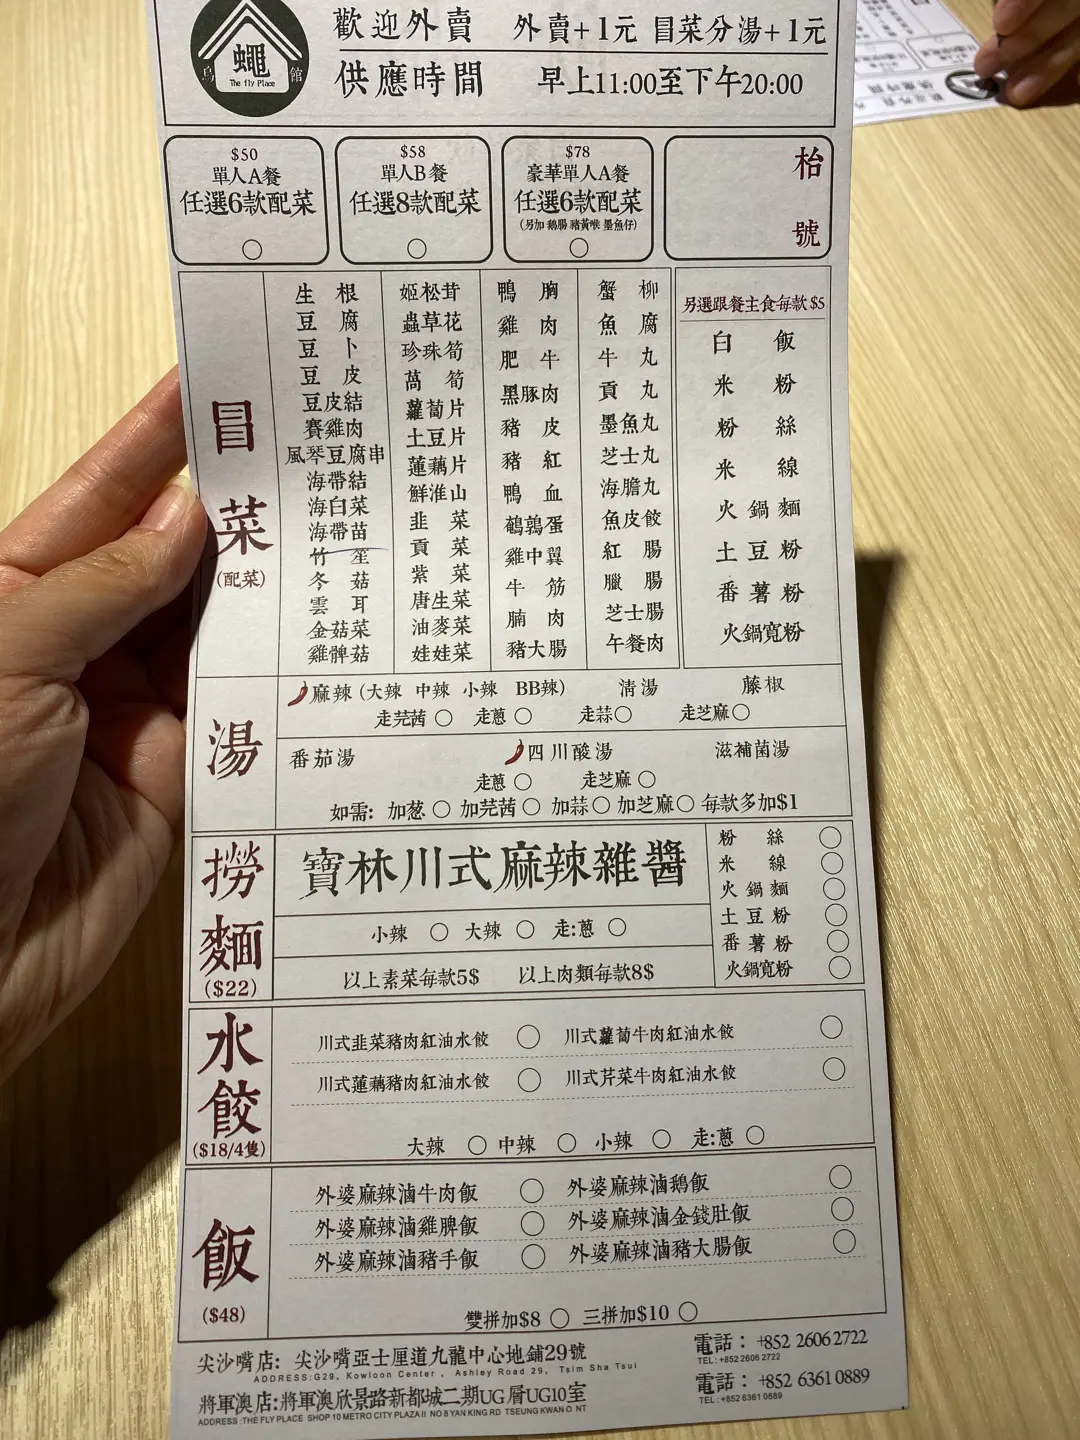 蠅
The fly Place
烏 館
歡迎外賣 外賣+1元 冒菜分湯+1元
供應時間 早上11:00至下午20:00
$50
單人A餐
任選6款配菜
$58
單人B餐
任選8款配菜
$78
豪華單人A餐
任選6款配菜
(另加 鵝腸 豬黃喉 墨魚仔)
枱號
冒菜
(配菜)
生根
豆腐
豆卜
豆皮
豆皮結
賽雞肉
風琴豆腐串
海帶結
海白菜
海帶苗
竹笙
冬菇
雲耳
金菇菜
雞髀菇
姬松茸
蟲草花
珍珠筍
萵筍
蘿蔔片
土豆片
蓮藕片
鮮淮山
韭菜
貢菜
紫菜
唐生菜
油麥菜
娃娃菜
鴨胸
雞肉
肥牛
黑豚肉
豬皮
豬紅
鴨血
鵪鶉蛋
雞中翼
牛筋
腩肉
豬大腸
蟹柳
魚腐
牛丸
貢丸
墨魚丸
芝士丸
海膽丸
魚皮餃
紅腸
臘腸
芝士腸
午餐肉
另選跟餐主食每款$5
白飯
米粉
粉絲
米線
火鍋麵
土豆粉
番薯粉
火鍋寬粉
湯
麻辣 (大辣 中辣 小辣 BB辣) 清湯 藤椒
走芫茜 走蔥 走蒜 走芝麻
番茄湯 四川酸湯 滋補菌湯
走蔥 走芝麻
如需: 加葱 加芫茜 加蒜 加芝麻 每款多加$1
撈麵
($22)
寶林川式麻辣雜醬
小辣 大辣 走:蔥
以上素菜每款5$ 以上肉類每款8$
粉絲
米線
火鍋麵
土豆粉
番薯粉
火鍋寬粉
水餃
($18/4隻)
川式韭菜豬肉紅油水餃 川式蘿蔔牛肉紅油水餃
川式蓮藕豬肉紅油水餃 川式芹菜牛肉紅油水餃
大辣 中辣 小辣 走:蔥
飯
($48)
外婆麻辣滷牛肉飯 外婆麻辣滷鵝飯
外婆麻辣滷雞脾飯 外婆麻辣滷金錢肚飯
外婆麻辣滷豬手飯 外婆麻辣滷豬大腸飯
雙拼加$8 三拼加$10
尖沙嘴店: 尖沙嘴亞士厘道九龍中心地鋪29號
ADDRESS:G29, Kowloon Center , Ashley Road 29, Tsim Sha Tsui
電話: +852 2606 2722
TEL:+852 2606 2722
將軍澳店:將軍澳欣景路新都城二期UG層UG10室
ADDRESS :THE FLY PLACE SHOP 10 METRO CITY PLAZA II NO 8 YAN KING RD TSEUNG KWAN O NT
電話: +852 6361 0889
TEL:+852 6361 0889